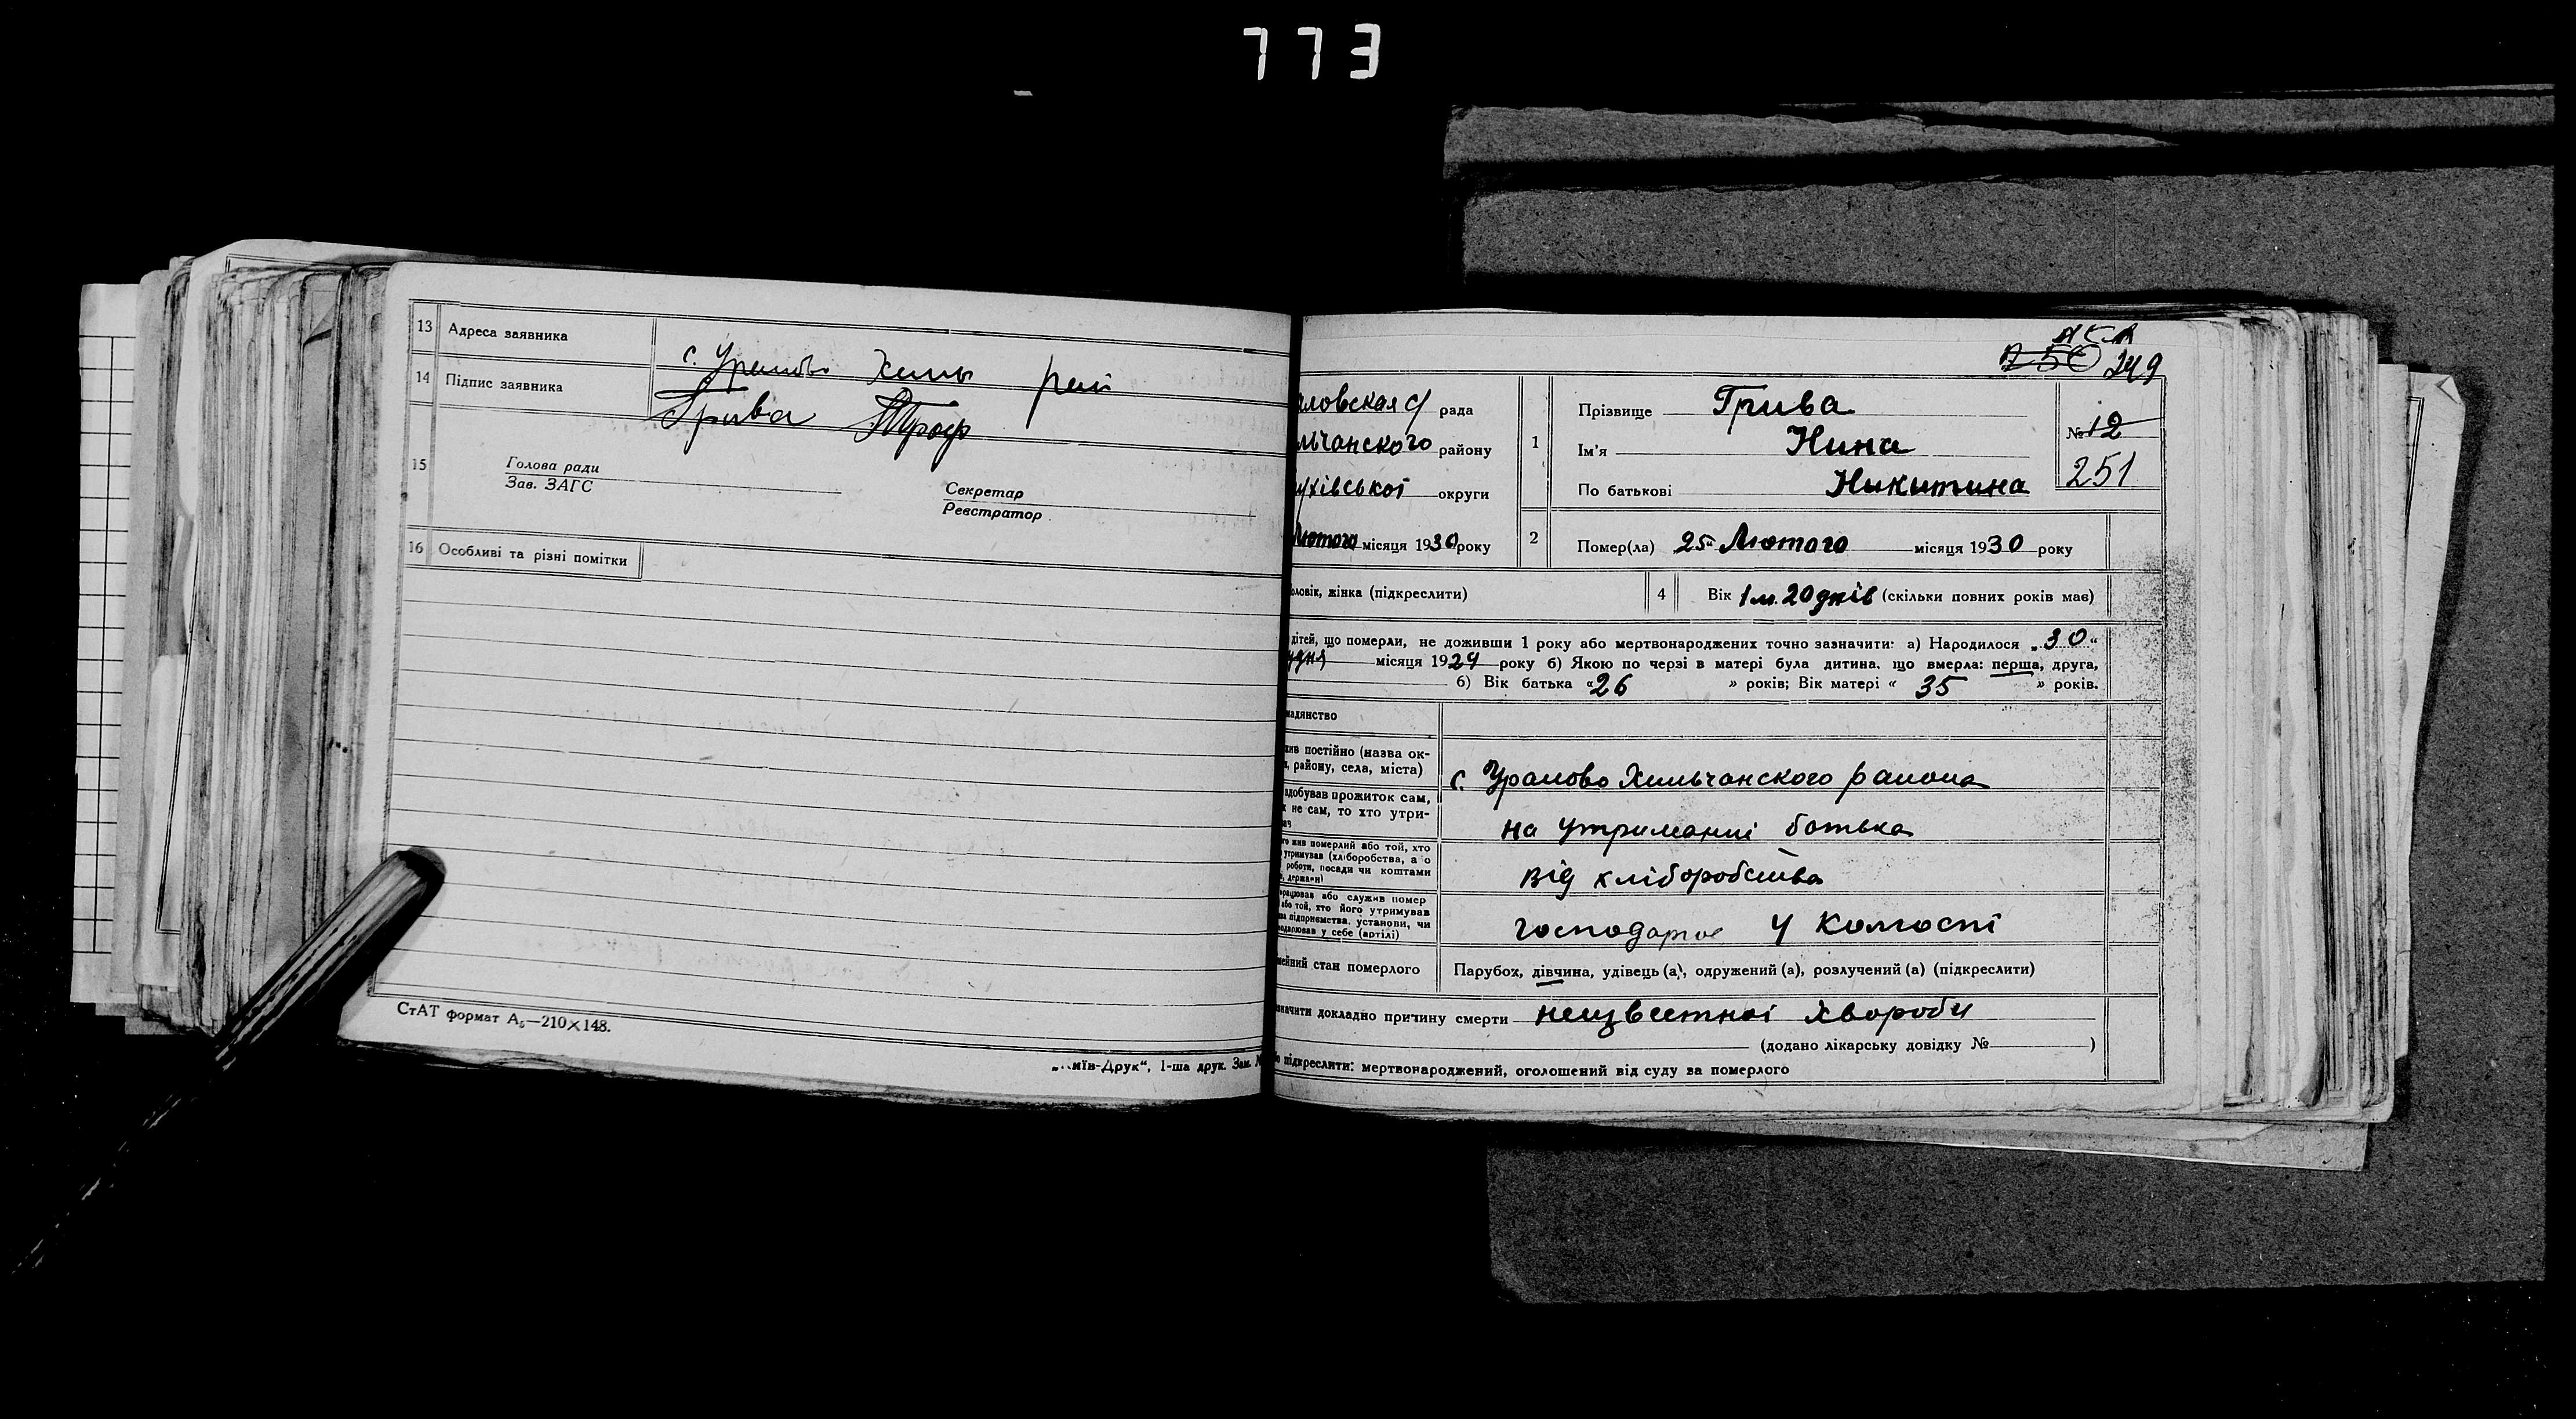 773
13 Адреса заявника
с. Уралово Хиль рай
14 Підпис заявника
Грива
15
Голова ради
Зав. ЗАГС
Секретар
Реєстратор
16 Особливі та різні помітки
СтАТ формат А5—210×148.
иїв-Друк", 1-ша друк. Зам. №
250 249
аловская с/ рада
льчанского району
ухівської округи
Лютого місяця 1930 року
1
Прізвище Грива
Ім'я Нина
По батькові Никитина
№ 12
251
2 Помер(ла) 25" Лютого місяця 1930 року
оловік, жінка (підкреслити)
4 Вік 1 м. 20 днів (скільки повних років має)
дітей, що померли, не доживши 1 року або мертвонароджених точно зазначити: а) Народилося „30"
удня місяця 1929 року б) Якою по черзі в матері була дитина, що вмерла: перша, друга,
б) Вік батька «26 » років; Вік матері « 35 » років.
мадянство
жив постійно (назва ок-
, району, села, міста)
с. Уралово Хильчанского района
здобував прожиток сам,
не сам, то хто утри-
на утриманні батька
го жив померлий або той, хто
утримував (хліборобства, а о
роботи, посади чи коштами
, держави)
від хліборобства
працював або служив помер
або той, хто його утримував
ва підприємства, установи, чи
одарював у себе (артілі)
господарює у колгоспі
мейний стан померлого
Парубок, дівчина, удівець (а), одружений (а), розлучений (а) (підкреслити)
значити докладно причину смерти неизвестної хвороби
(додано лікарську довідку № )
о підкреслити: мертвонароджений, оголошений від суду за померлого